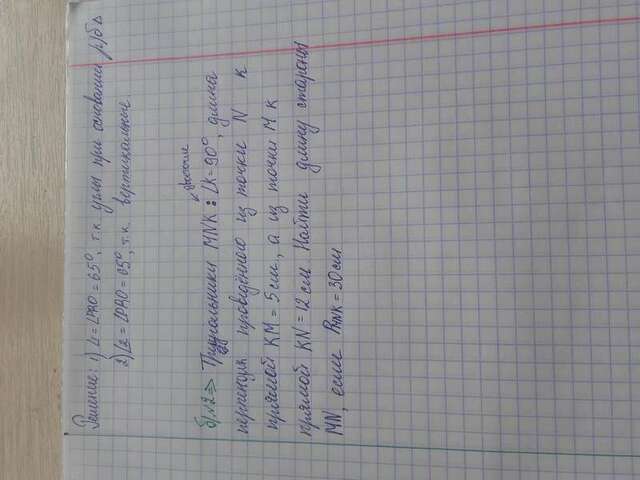 Решение: 1) ∠ = ∠PAO = 65°, т.к углы при основании р/б Δ
2) ∠ = ∠PAO = 65°, т.к. вертикальные
б) №2 => Треугольники MNK : ∠K = 90°, длина
проведённого из точки N к
прямой KM = 5 см, а из точки M к
прямой KN = 12 см Найти длину стороны
MN, если PMNK = 30 см